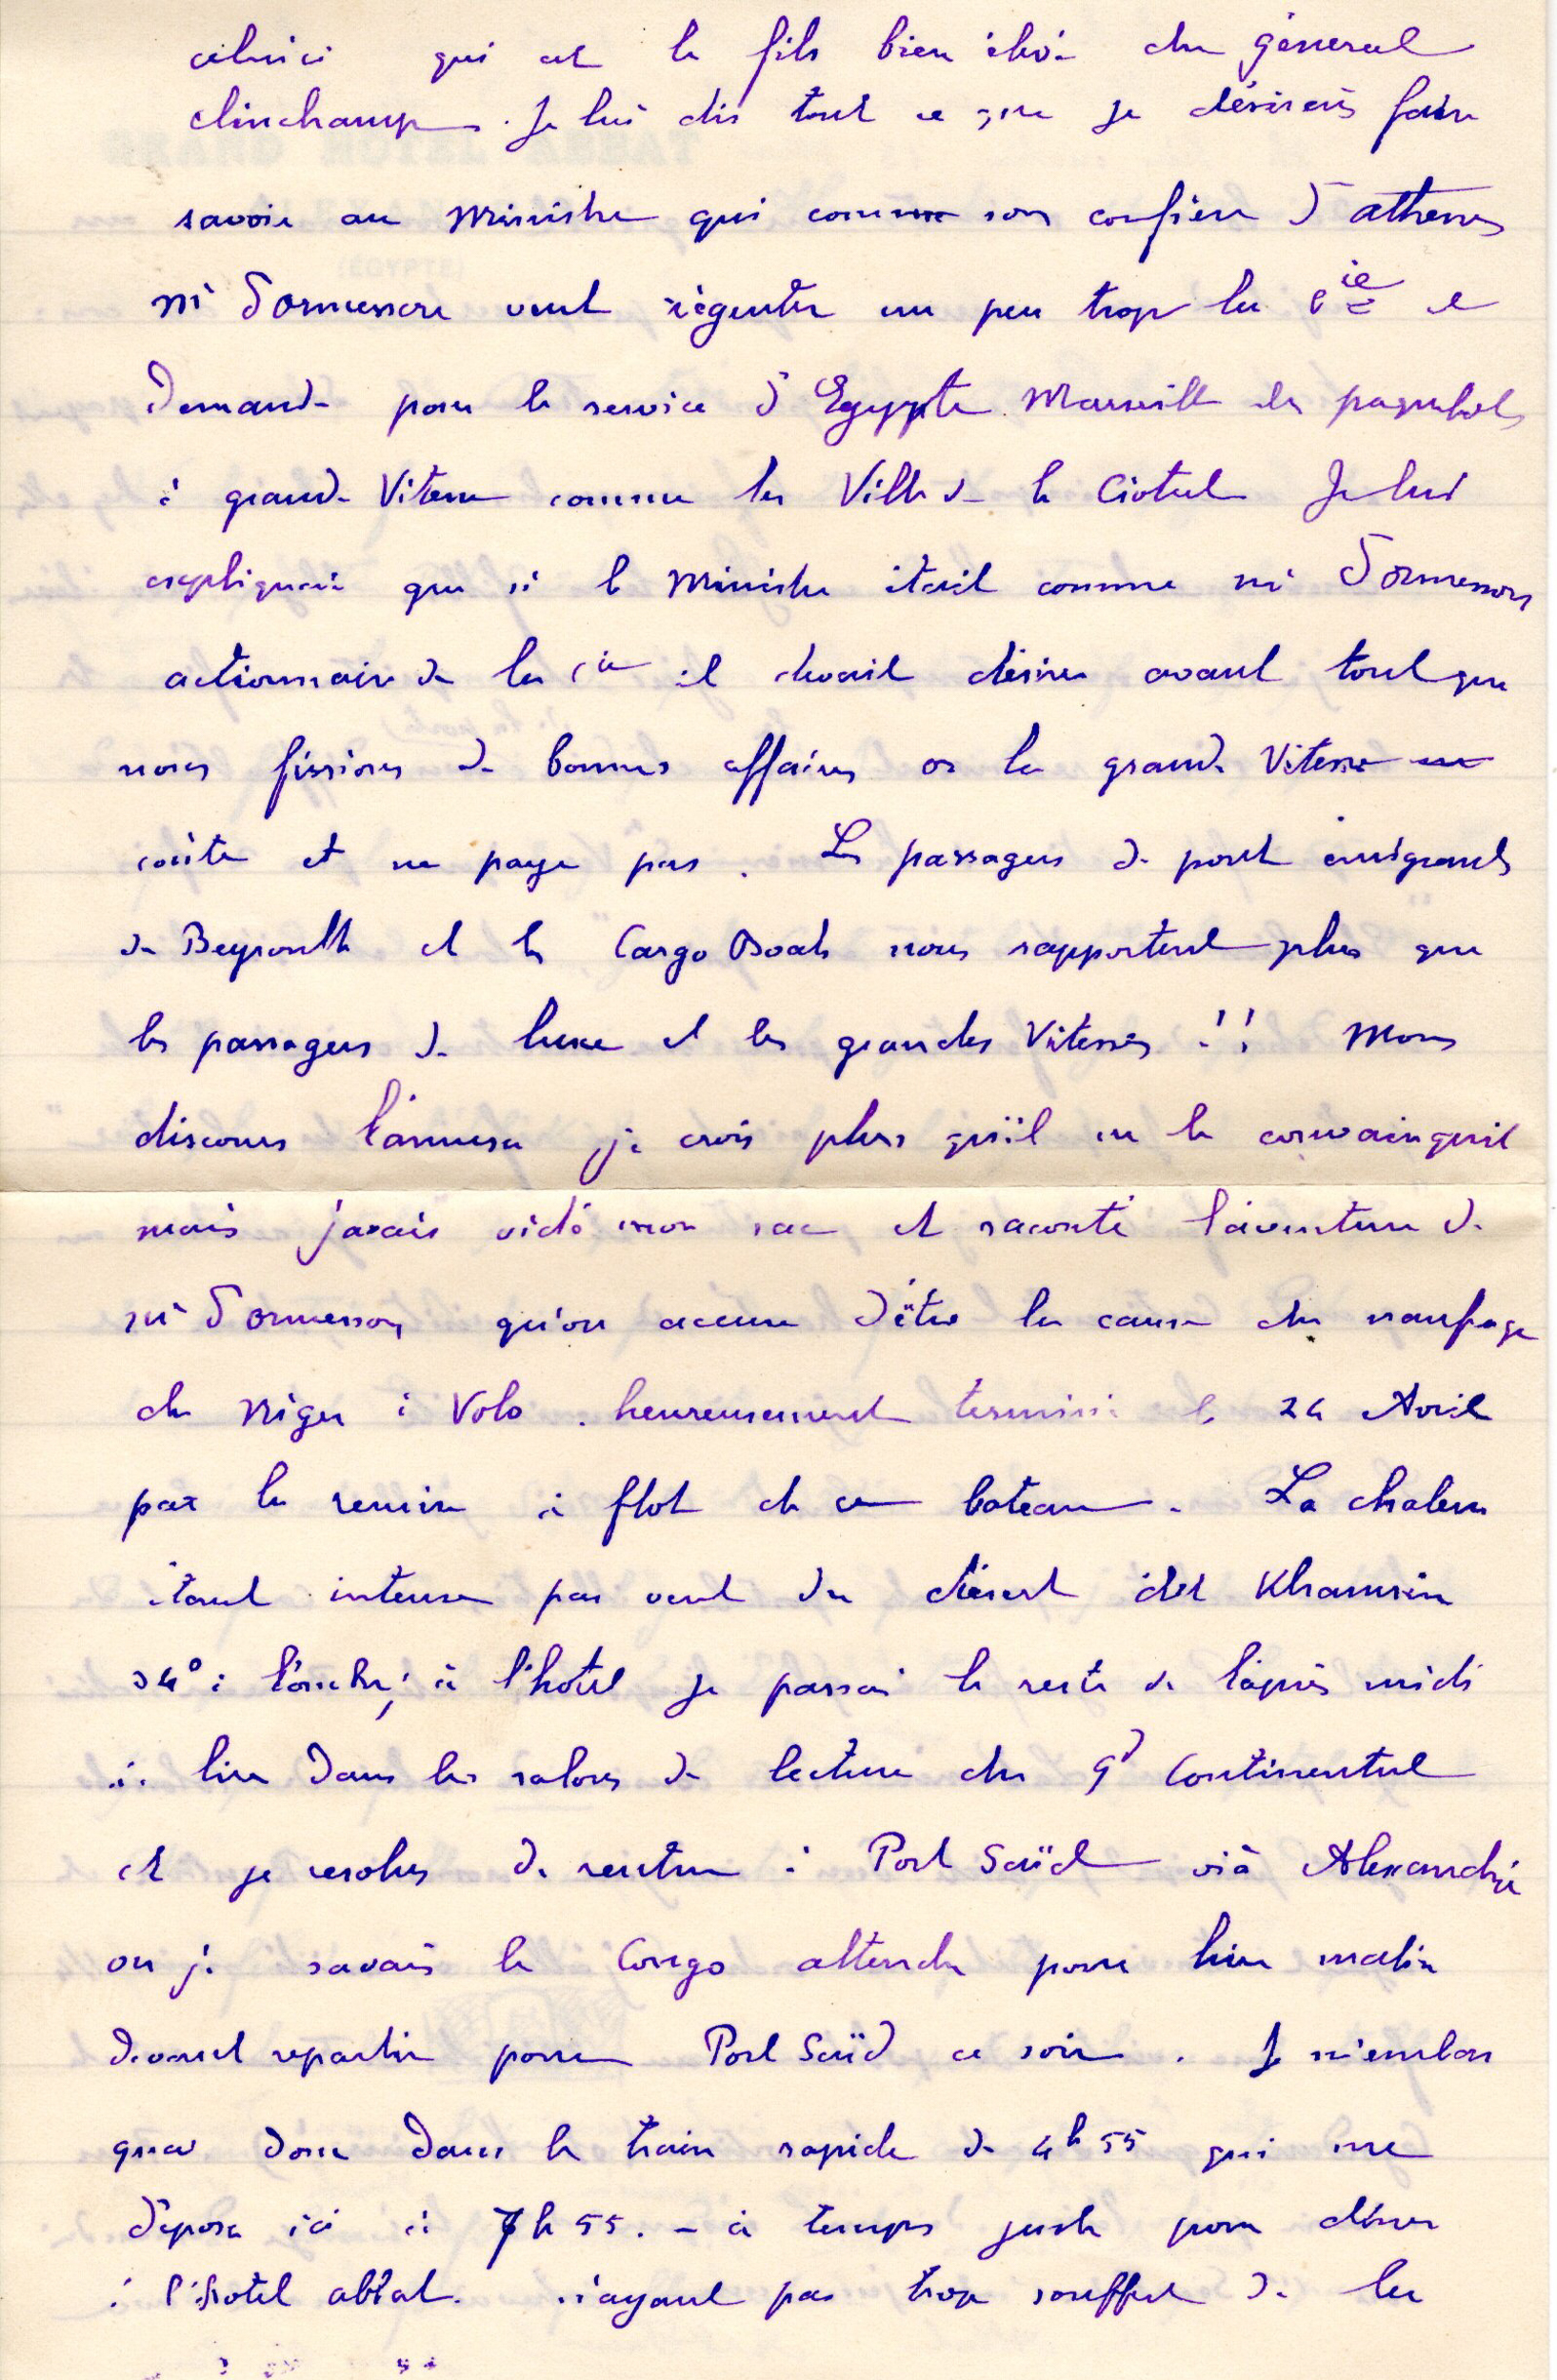 celui ci qui est le fils bien élevé du général
Clinchamp. Je lui dis tout ce que je désirais faire
savoir au Ministre qui comme son confrère d'athenes
Mr d'Ormesson veut régenter un peu trop la Cie et
demande pour le service d'Egypte Marseille des paquebots
à grande Vitesse comme les Ville de la Ciotat Je lui
expliquai que si le Ministre était comme Mr d'Ormesson
actionnaire de la Cie il devait désirer avant tout que
nous fissions de bonnes affaires or la grande Vitesse
coûte et ne paye pas. Les passagers de pont émigrants
de Beyrouth et les Cargo Boats nous rapportent plus que
les passagers de luxe et les grandes Vitesses !! Mon
discours l'amusa je crois plus qu'il ne le convainquit
mais j'avais vidé mon sac et raconté l'aventure de
Mr d'Ormesson qu'on accuse d'être la cause du naufrage
du Niger à Volo. heureusement terminé le 24 Avril
par la remise à flot de ce bateau. La chaleur
étant intense par vent du désert dit Khamsin
34° à l'ombre; à l'hotel je passai le reste de l'après midi
à lire dans les salons de lecture du Gd Continental
et je resolus de rentrer à Port Saïd vià Alexandrie
ou je savais le Congo attendu pour hier matin
devant repartir pour Port Saïd ce soir. Je m'embar
quai donc dans le train rapide de 4h55 qui me
déposa ici à 7h55. - à temps juste pour diner
à l'hotel abbat. n'ayant pas trop souffert de la